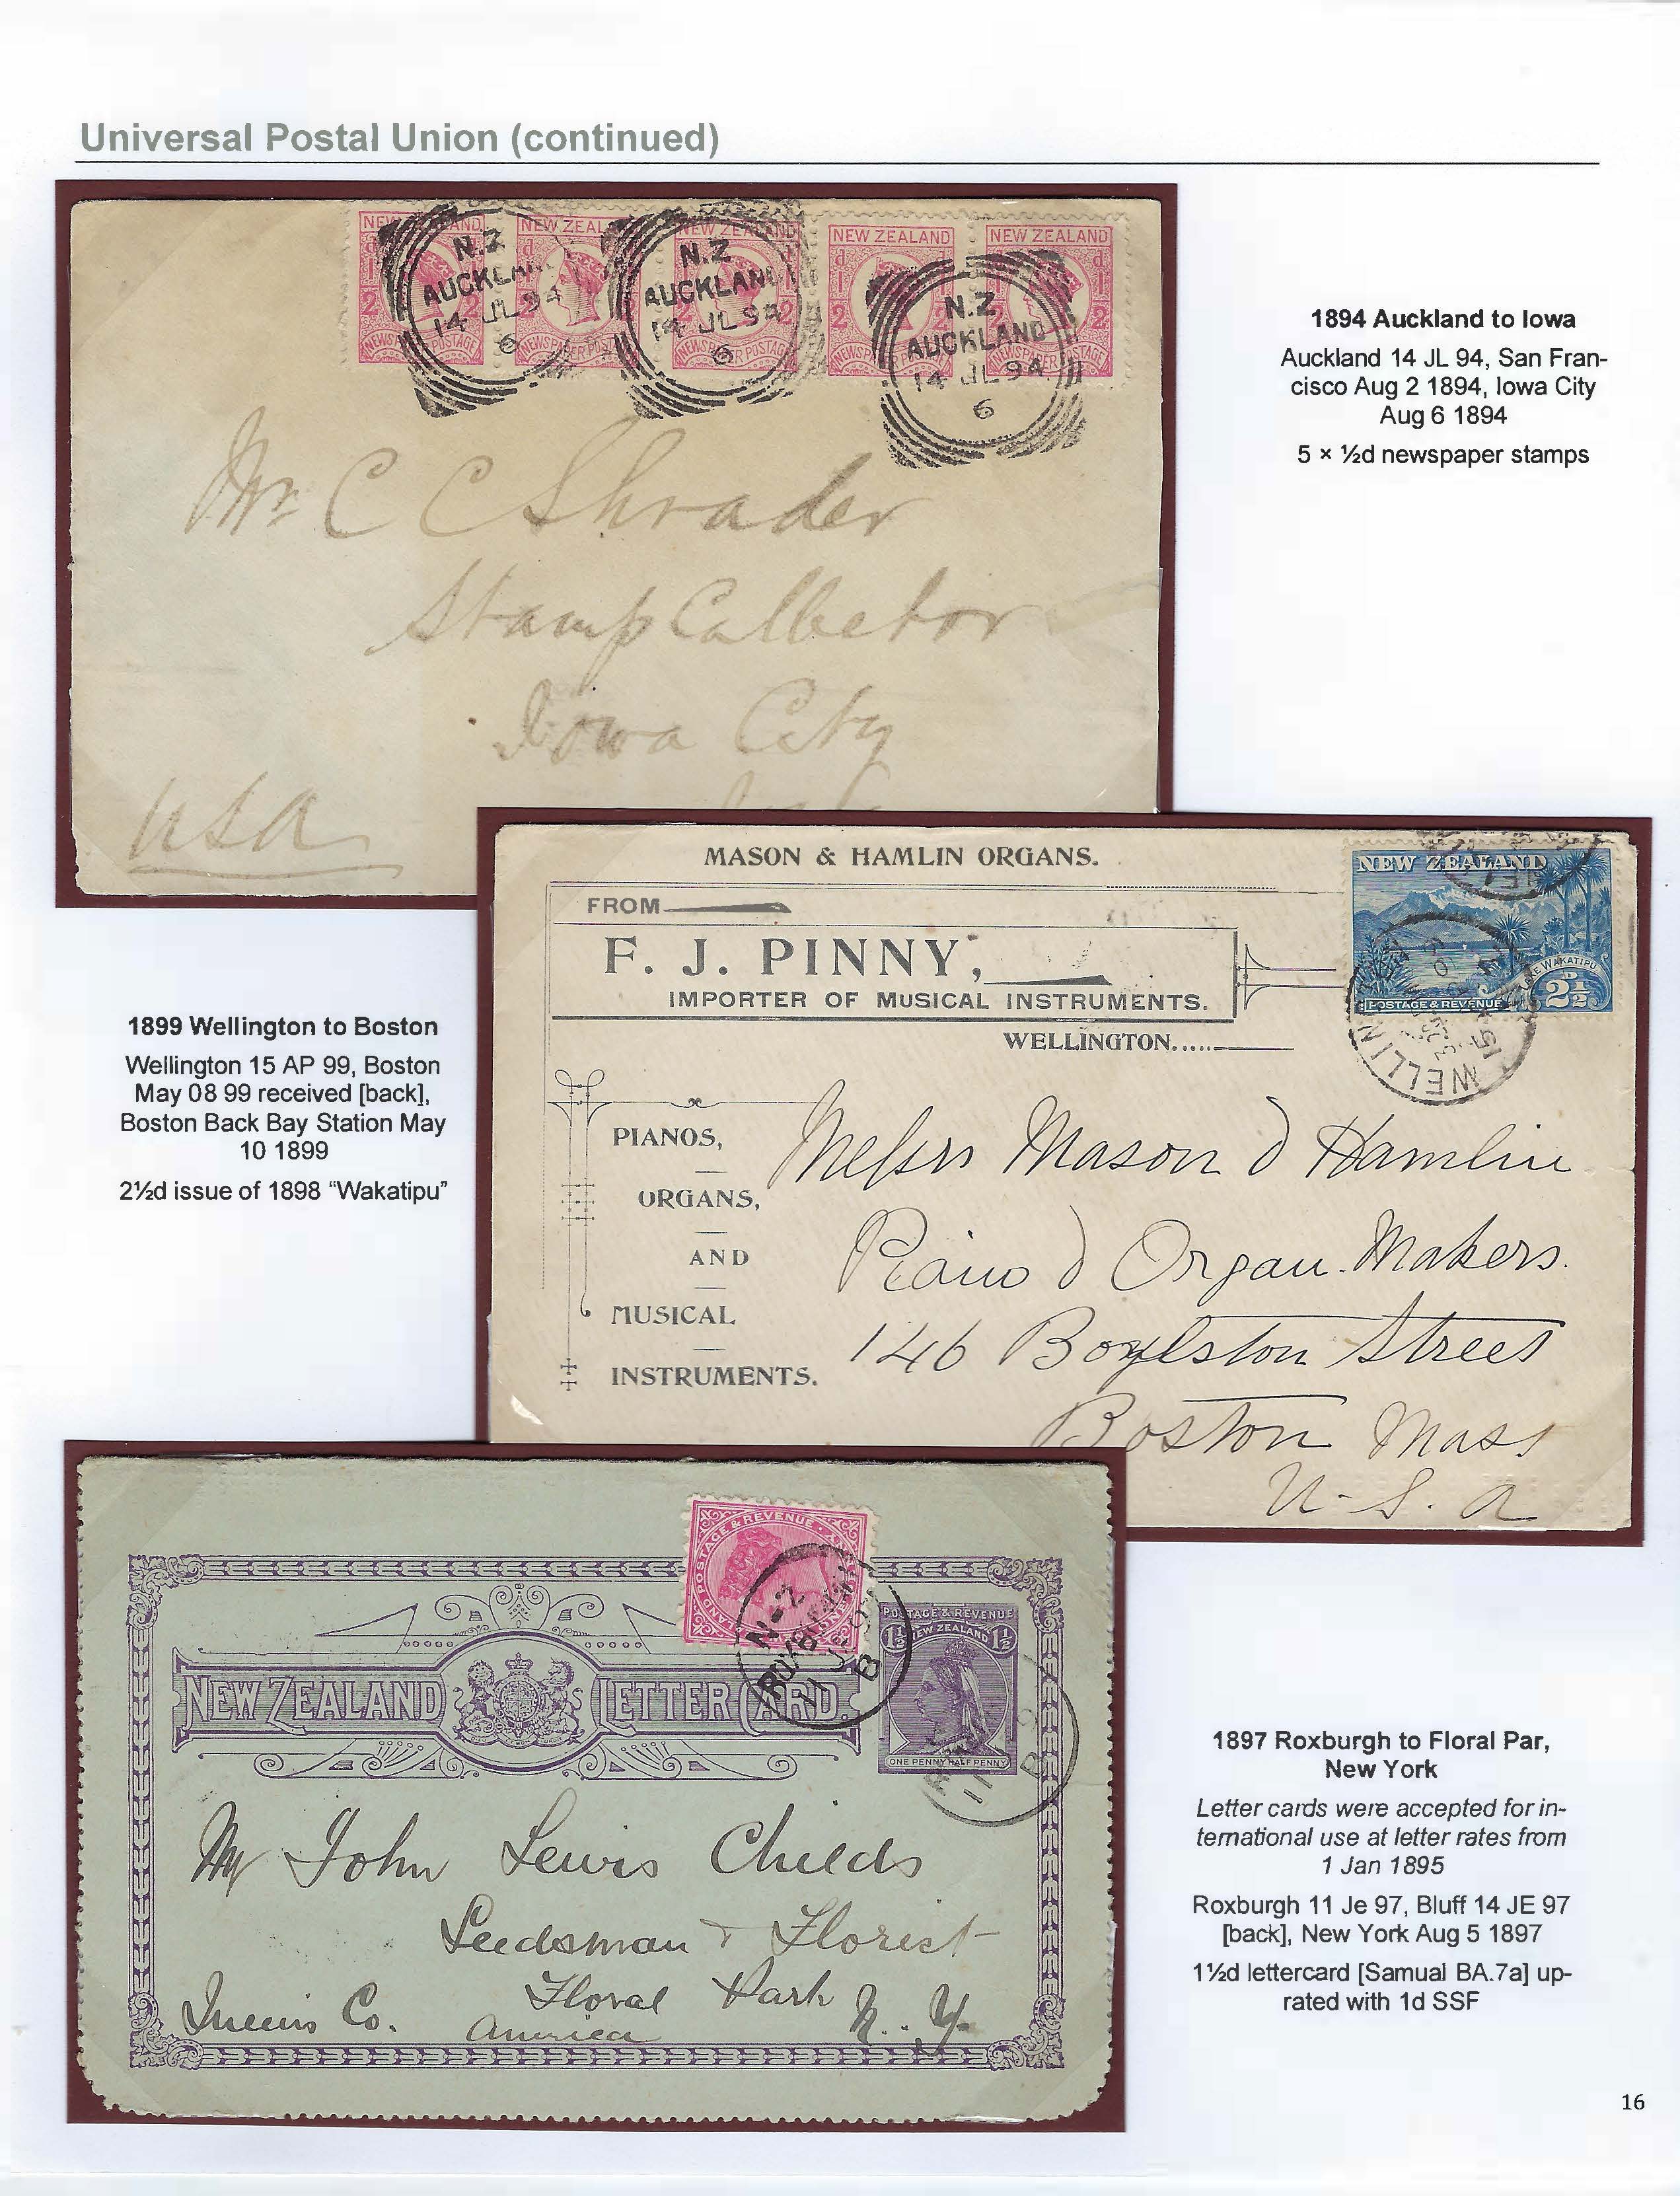 Universal Postal Union (continued)
NEW ZEALAND
NEW ZEALAND
NEW ZEALAND
NEW ZEALAND
NEW ZEALAND
N.Z
AUCKLAND
14 JL 94
6
N.Z
AUCKLAND
14 JL 94
6
N.Z
AUCKLAND
14 JL 94
6
NEWSPAPER POSTAGE
Mr. C C Shrader
Stamp Collector
Iowa City
USA
1894 Auckland to Iowa
Auckland 14 JL 94, San Fran-
cisco Aug 2 1894, Iowa City
Aug 6 1894
5 × ½d newspaper stamps
MASON & HAMLIN ORGANS.
FROM
F. J. PINNY,
IMPORTER OF MUSICAL INSTRUMENTS.
WELLINGTON.....
PIANOS,
ORGANS,
AND
MUSICAL
INSTRUMENTS.
NEW ZEALAND
LAKE WAKATIPU
POSTAGE & REVENUE
2½D
WELLIN
Messrs Mason & Hamlin
Piano & Organ Makers.
146 Boylston Street
Boston Mass
U. S. A
1899 Wellington to Boston
Wellington 15 AP 99, Boston
May 08 99 received [back],
Boston Back Bay Station May
10 1899
2½d issue of 1898 “Wakatipu”
POSTAGE & REVENUE
N-Z
ROXBURGH
11
B
POSTAGE & REVENUE
1½ NEW ZEALAND 1½
ONE PENNY HALF PENNY
NEW ZEALAND LETTER CARD.
Mr John Lewis Childs
Seedsman & Florist
Floral Park
Queens Co. N. Y.
America
1897 Roxburgh to Floral Par,
New York
Letter cards were accepted for in-
ternational use at letter rates from
1 Jan 1895
Roxburgh 11 Je 97, Bluff 14 JE 97
[back], New York Aug 5 1897
1½d lettercard [Samual BA.7a] up-
rated with 1d SSF
16